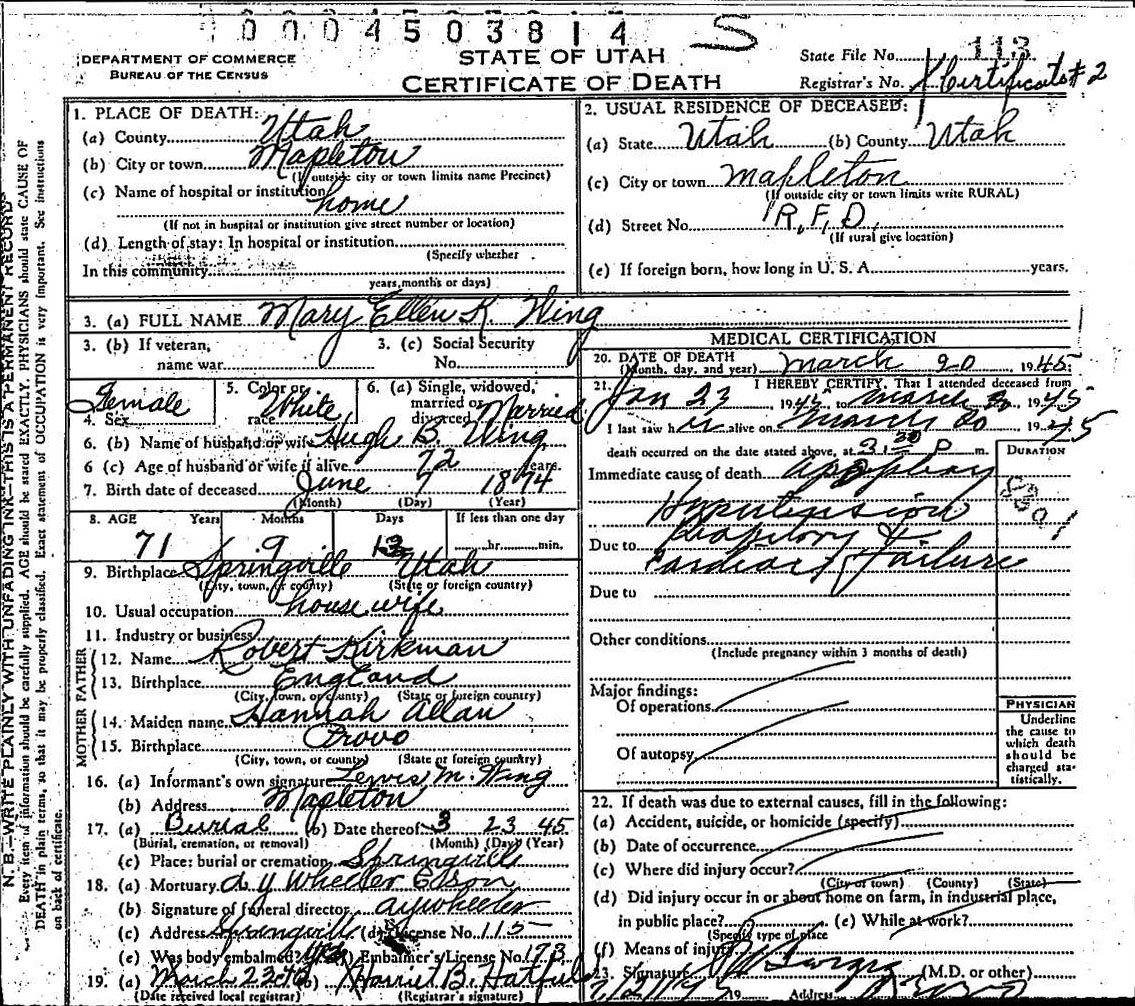 0004503814 S
DEPARTMENT OF COMMERCE
BUREAU OF THE CENSUS
STATE OF UTAH
CERTIFICATE OF DEATH
State File No. 113
Registrar's No. Certificate #2
N. B.—WRITE PLAINLY WITH UNFADING INK—THIS IS A PERMANENT RECORD
Every item of information should be carefully supplied. AGE should be stated EXACTLY. PHYSICIANS should state CAUSE OF
DEATH in plain terms, so that it may be properly classified. Exact statement of OCCUPATION is very important. See instructions
on back of certificate.
1. PLACE OF DEATH:
(a) County Utah
(b) City or town Mapleton
(If outside city or town limits name Precinct)
(c) Name of hospital or institution
home
(If not in hospital or institution give street number or location)
(d) Length of stay: In hospital or institution
(Specify whether
In this community
years, months or days)
2. USUAL RESIDENCE OF DECEASED:
(a) State Utah (b) County Utah
(c) City or town Mapleton
(If outside city or town limits write RURAL)
(d) Street No. R.F.D.
(If rural give location)
(e) If foreign born, how long in U. S. A. years.
3. (a) FULL NAME Mary Ellen K. Wing
3. (b) If veteran,
name war
3. (c) Social Security
No.
4. Sex Female
5. Color or
race White
6. (a) Single, widowed,
married or
divorced Married
6. (b) Name of husband or wife Hugh B. Wing
6 (c) Age of husband or wife if alive 72 years.
7. Birth date of deceased June 7 1874
(Month) (Day) (Year)
8. AGE Years Months Days If less than one day
71 9 13 hr. min.
9. Birthplace Springville Utah
(City, town, or county) (State or foreign country)
10. Usual occupation housewife
11. Industry or business
FATHER
12. Name Robert Kirkman
13. Birthplace England
(City, town, or county) (State or foreign country)
MOTHER
14. Maiden name Hannah Allan
15. Birthplace Provo
(City, town, or county) (State or foreign country)
16. (a) Informant's own signature Lewis M. Wing
(b) Address Mapleton
17. (a) Burial (b) Date thereof 3 23 45
(Burial, cremation, or removal) (Month) (Day) (Year)
(c) Place: burial or cremation Springville
18. (a) Mortuary A Y Wheeler & Son
(b) Signature of funeral director a y wheeler
(c) Address Springville (d) License No. 115
(e) Was body embalmed? yes Embalmer's License No. 173
19. (a) March 23 Harriet B. Hatfield
(Date received local registrar) (Registrar's signature)
MEDICAL CERTIFICATION
20. DATE OF DEATH
(Month, day, and year) March 20 1945
21. I HEREBY CERTIFY, That I attended deceased from
Jan 23 19 to March 20, 1945
I last saw her alive on March 20 1945
death occurred on the date stated above, at P m.
DURATION
Immediate cause of death apoplexy
Hypertension
Due to &
Failure
Due to
Other conditions
(Include pregnancy within 3 months of death)
Major findings:
Of operations
Of autopsy
PHYSICIAN
Underline
the cause to
which death
should be
charged sta-
tistically.
22. If death was due to external causes, fill in the following:
(a) Accident, suicide, or homicide (specify)
(b) Date of occurrence
(c) Where did injury occur?
(City or town) (County) (State)
(d) Did injury occur in or about home on farm, in industrial place,
in public place? (e) While at work?
(Specify type of place
(f) Means of injury
23. Signature (M.D. or other)
19 Address